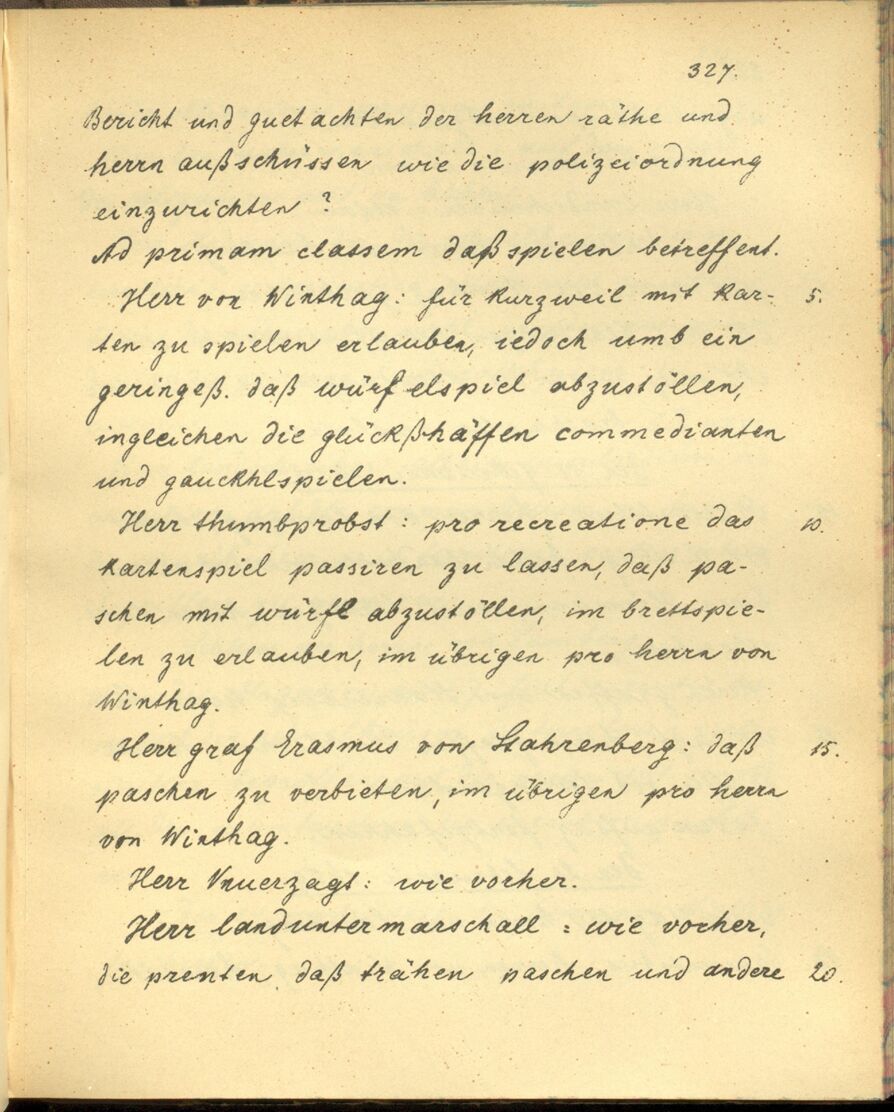 327.
Bericht und guetachten der herren räthe und
herrn außschüssen wie die polizeiordnung
einzurichten?
Ad primam classem daß spielen betreffent.
Herr von Winthag: für kurzweil mit kar- 5.
ten zu spielen erlauben, iedoch umb ein
geringeß. daß würfelspiel abzustöllen,
ingleichen die glückßhäffen commedianten
und gauckhlspielen.
Herr thumbprobst: pro recreatione das 10.
kartenspiel passiren zu lassen, daß pa-
schen mit würfl abzustöllen, im brettspie-
len zu erlauben, im übrigen pro herrn von
Winthag.
Herr graf Erasmus von Stahrenberg: daß 15.
paschen zu verbieten, im übrigen pro herrn
von Winthag.
Herr Vnuerzagt: wie vorher.
Herr landuntermarschall: wie vorher,
die prenten daß trähen paschen und andere 20.